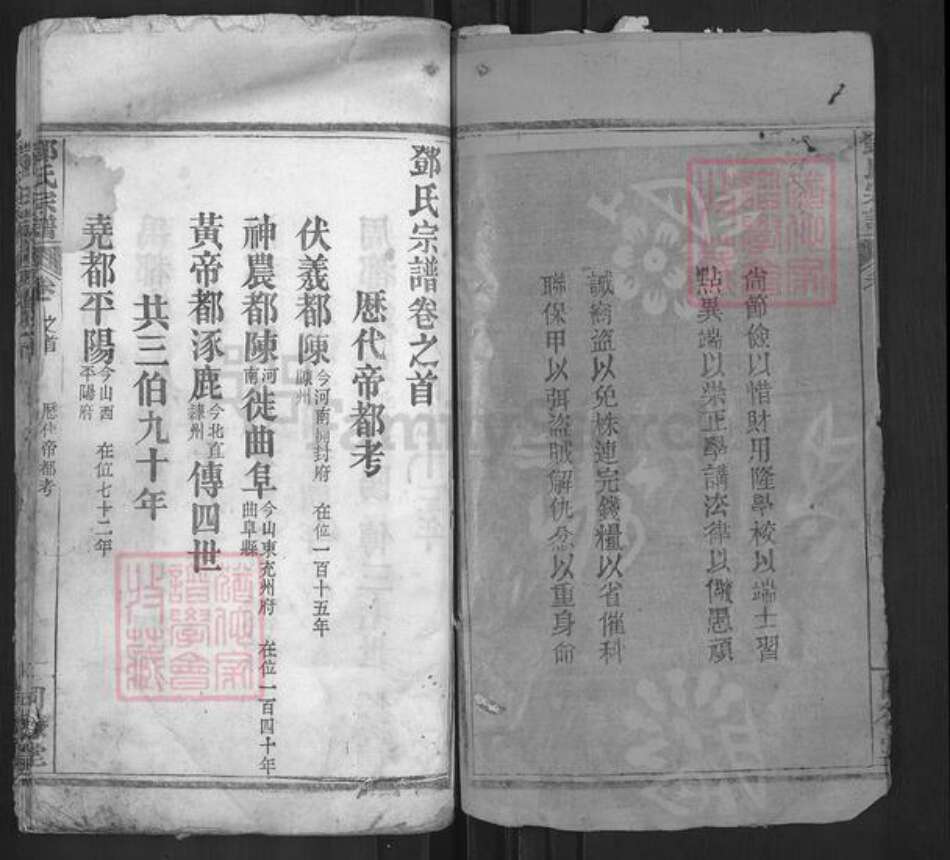 尚節儉以惜財用隆學校以端士習
黜異端以崇正學講法律以儆愚頑
誡窩盜以免株連完錢糧以省催科
聯保甲以弭盜賊解仇忿以重身命
鄧氏宗譜卷之首
歷代帝都考
伏羲都陳今河南開封府陳州 在位一百十五年
神農都陳河南徙曲阜今山東兗州府曲阜縣 在位一百四十年
黃帝都涿鹿今北直隸州傳四世
共三伯九十年
堯都平陽今山西平陽府 在位七十二年
鄧氏宗譜 卷之首 歷代帝都考